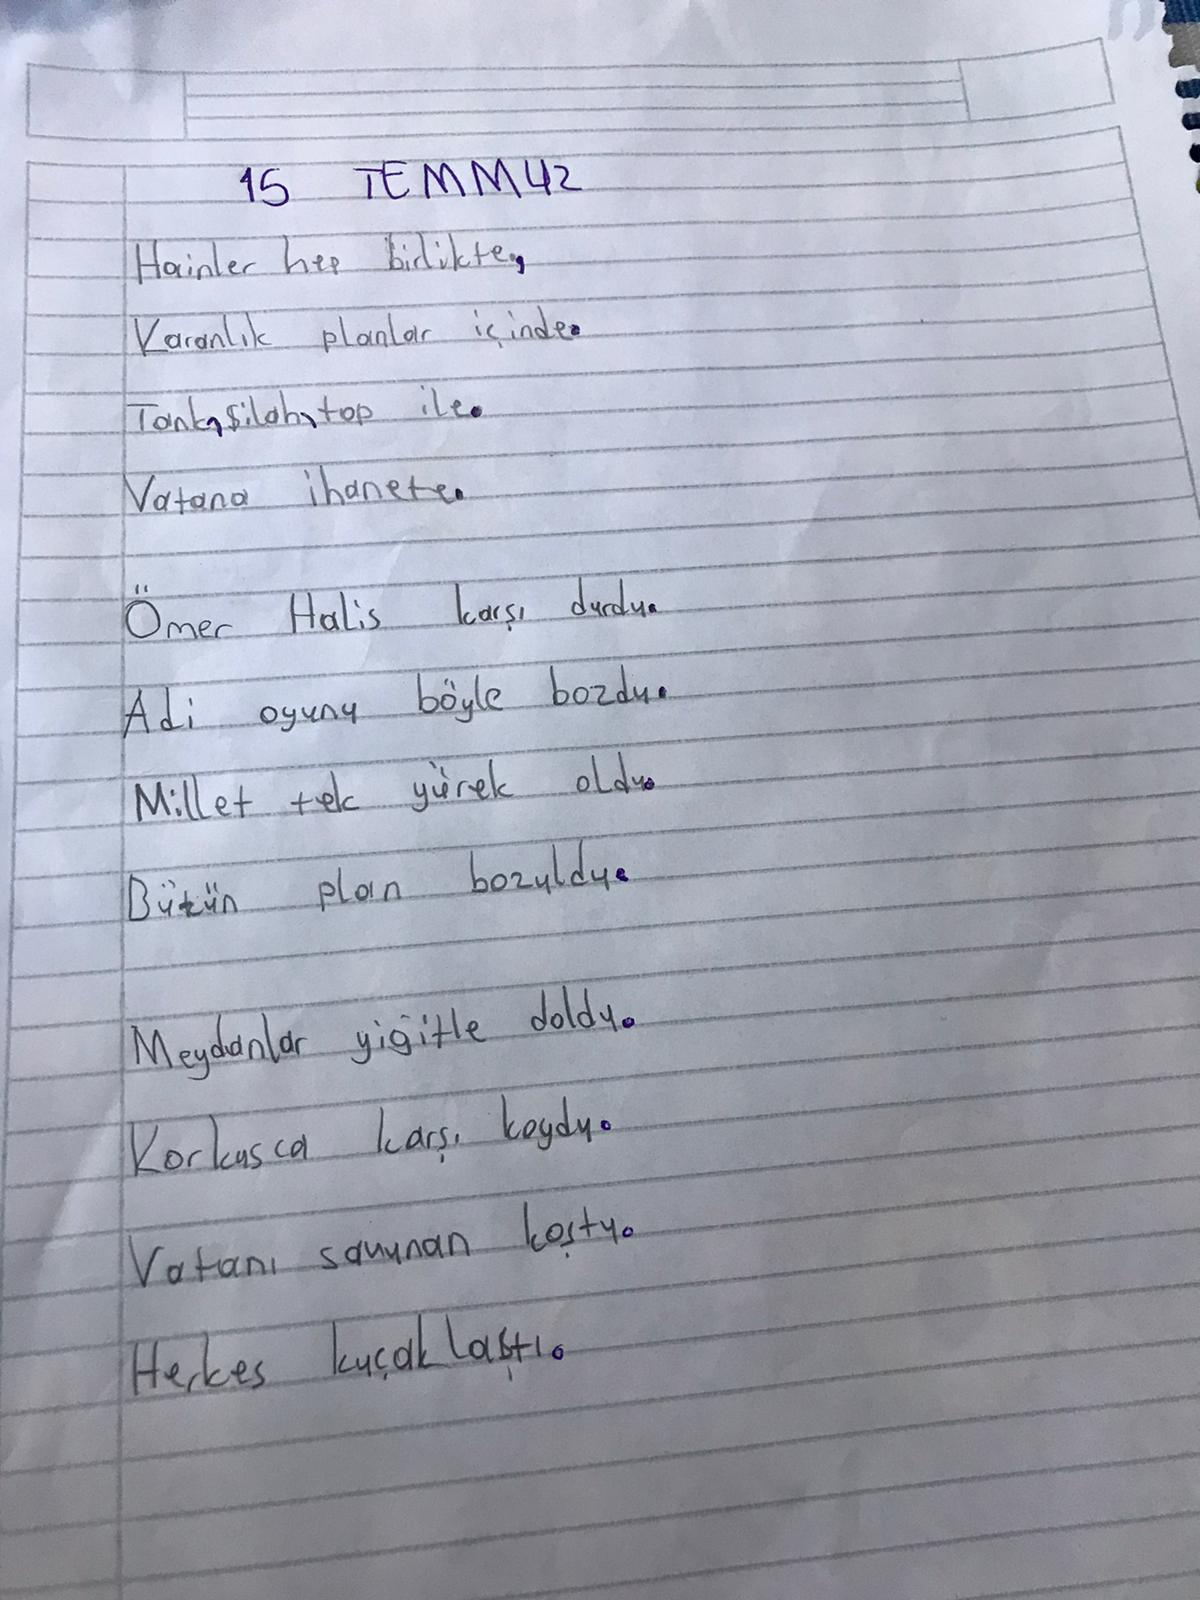 15 TEMMUZ
Hainler hep birlikte,
Karanlık planlar içinde.
Tank, silah, top ile.
Vatana ihanete.
Ömer Halis karşı durdu.
Adi oyunu böyle bozdu.
Millet tek yürek oldu.
Bütün plan bozuldu.
Meydanlar yiğitle doldu.
Korkusca karşı koydu.
Vatanı savunan koştu.
Herkes kuçaklaştı.